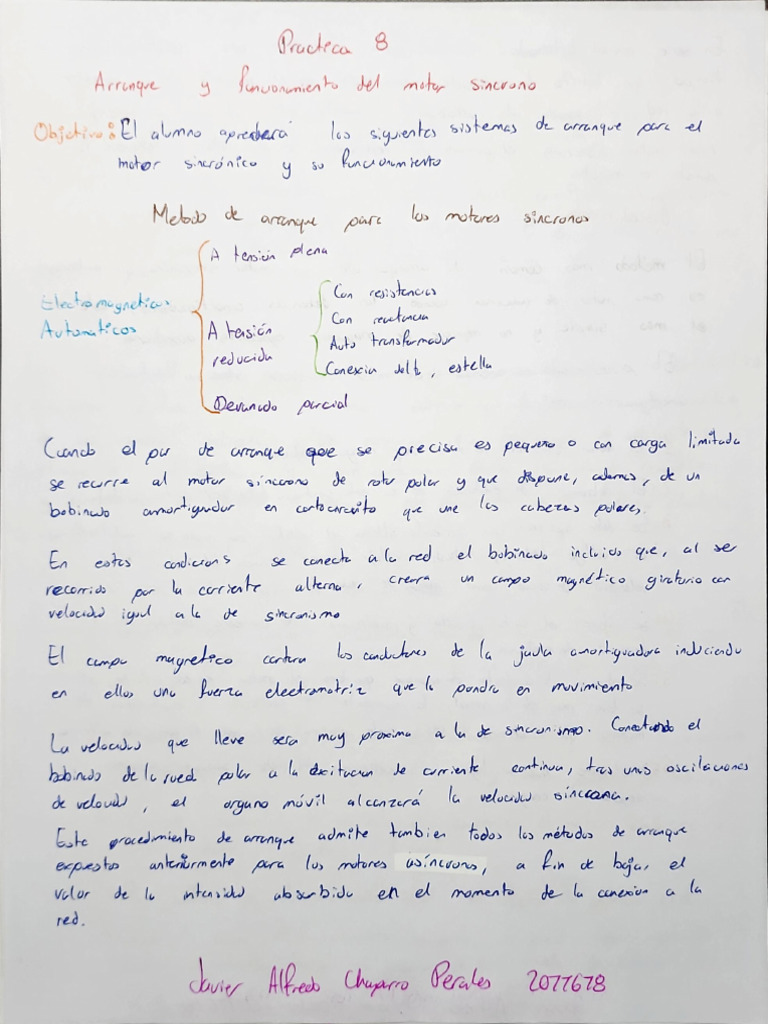 Practica 8
Arranque y funcionamiento del motor sincrono
Objetivo: El alumno aprenderá los siguientes sistemas de arranque para el
motor sincrónico y su funcionamiento
Metodo de arranque para los motores sincronos
Electromagneticos
Automáticos
A tensión plena
A tensión
reducida
Con resistencias
Con reactancia
Auto transformador
Conexion delta, estella
Devanado parcial
Cuando el par de arranque que se precisa es pequeño o con carga limitada
se recurre al motor sincrono de rotor polar y que dispone, ademas, de un
bobinado amortiguador en cortocircuito que une las cabezas polares.
En estas condiciones se conecta a la red el bobinado incluido que, al ser
recorrido por la corriente alterna, creara un campo magnético giratorio con
velocidad igual a la de sincronismo
El campo magnetico cortara los conductores de la jaula amortiguadora induciendo
en ellos una fuerza electromotriz que la pondra en movimiento
La velocidad que lleve sera muy proxima a la de sincronismo. Conectando el
bobinado de la rueda polar a la excitacion de corriente continua, tras unas oscilaciones
de velocidad, el organo móvil alcanzará la velocidad sincrona.
Este procedimiento de arranque admite tambien todos los métodos de arranque
expuestos anteriormente para los motores asíncronos, a fin de bajar el
valor de la intensidad absorbida en el momento de la conexion a la
red.
Javier Alfredo Chaparro Perales 2077678